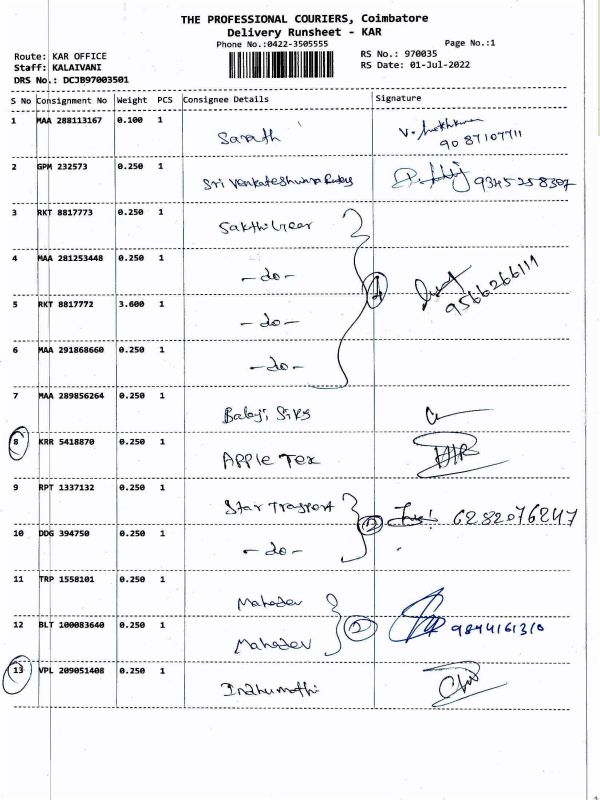 THE PROFESSIONAL COURIERS, Coimbatore
Delivery Runsheet - KAR
Phone No.:0422-3505555 Page No.:1
Route: KAR OFFICE RS No.: 970035
Staff: KALAIVANI RS Date: 01-Jul-2022
DRS No.: DCJB97003501
S No Consignment No Weight PCS Consignee Details Signature
1 MAA 288113167 0.100 1 Sarath
90 87107711
2 GPM 232573 0.250 1 Sri Venkateshwara 9345258307
3 RKT 8817773 0.250 1 Sakthi Gear
4 MAA 281253448 0.250 1 -do- 4
9566266111
5 RKT 8817772 3.600 1 -do-
6 MAA 291868660 0.250 1 -do-
7 MAA 289856264 0.250 1 Balaji Silks
8 KRR 5418870 0.250 1 Apple Tex
9 RPT 1337132 0.250 1 Star Trasport 2 6282076247
10 DDG 394750 0.250 1 -do-
11 TRP 1558101 0.250 1 Mahadev
12 BLT 100083640 0.250 1 Mahadev 2 9844161310
13 VPL 209051408 0.250 1 Indhumathi